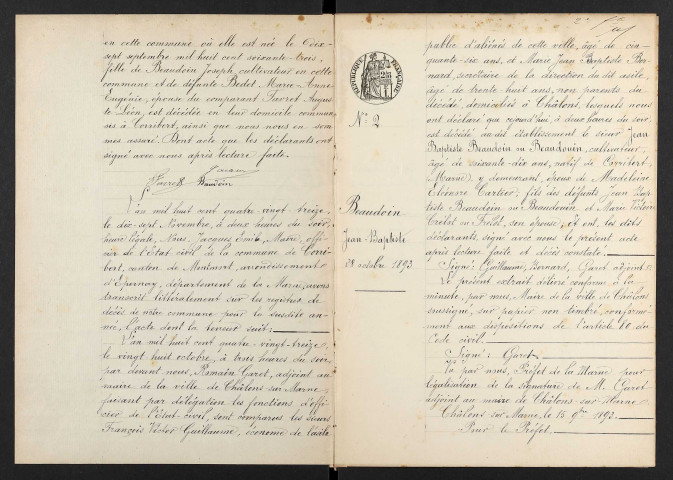 en cette commune où elle est née le Dix
sept septembre mil huit cent soixante-trois,
fille de Beaudoin Joseph cultivateur en cette
commune et de défunte Bedet Marie-Anne
Eugénie, épouse du comparant Favret Augus
te Léon, est décédée en leur domicile commun
sis à Corribert, ainsi que nous nous en som
mes assuré. Dont acte que les déclarants ont
signé avec nous après lecture faite.
Favret Baudoin
L'an mil huit cent quatre vingt treize,
le dix-sept Novembre, à deux heures du soir
heure légale, Nous, Jacques Emile, Maire, offi
cier de l'État civil de la commune de Corri
bert, canton de Montmort, arrondissement
d'Epernay, département de la Marne, avons
transcrit littéralement sur les registres de
décès de notre commune pour la susdite an-
née, l'acte dont la teneur suit:
L'an mil huit cent quatre-vingt-treize
le vingt huit octobre, à trois heures du soir
par devant nous, Romain Garet, adjoint au
maire de la ville de Châlons sur Marne,
faisant par délégation les fonctions d'offi-
cier de l'État civil, sont comparus les sieurs
François Victor Guillaume, économe de l'asile
RÉPUBLIQUE FRANÇAISE
N° 2
Beaudoin
Jean-Baptiste
28 octobre 1893
public d'aliénés de cette ville, âgé de cin-
quante-six ans, et Marie Jean Baptiste Ber-
nard, secrétaire de la direction du dit asile,
âgé de trente huit ans, non parents du
décédé, domiciliés à Châlons, lesquels nous
ont déclaré que cejourd'hui, à deux heures du soir
est décédé audit établissement le sieur Jean
Baptiste Beaudoin ou Beaudouin, cultivateur,
âgé de soixante-dix ans, natif de Corribert,
(Marne) y demeurant, époux de Madeleine
Eléonore Cartier; fils des défunts Jean Bap
tiste Beaudoin ou Beaudouin et Marie
son épouse, Et ont, les dits
déclarants, signé avec nous le présent acte
après lecture faite et décès constaté.
Signé: Guillaume, Bernard, Garet adjoint
Le présent extrait délivré conforme à la
minute, par nous, Maire de la ville de Châlons,
soussigné, sur papier non timbré, conformé-
ment aux dispositions de l'article 80 du
Code civil.
Signé: Garet
Vu par nous, Préfet de la Marne pour
légalisation de la signature de M. Garet
adjoint au maire de Châlons-sur-Marne
Châlons sur Marne, le 15 9bre 1893.
Pour le Préfet,